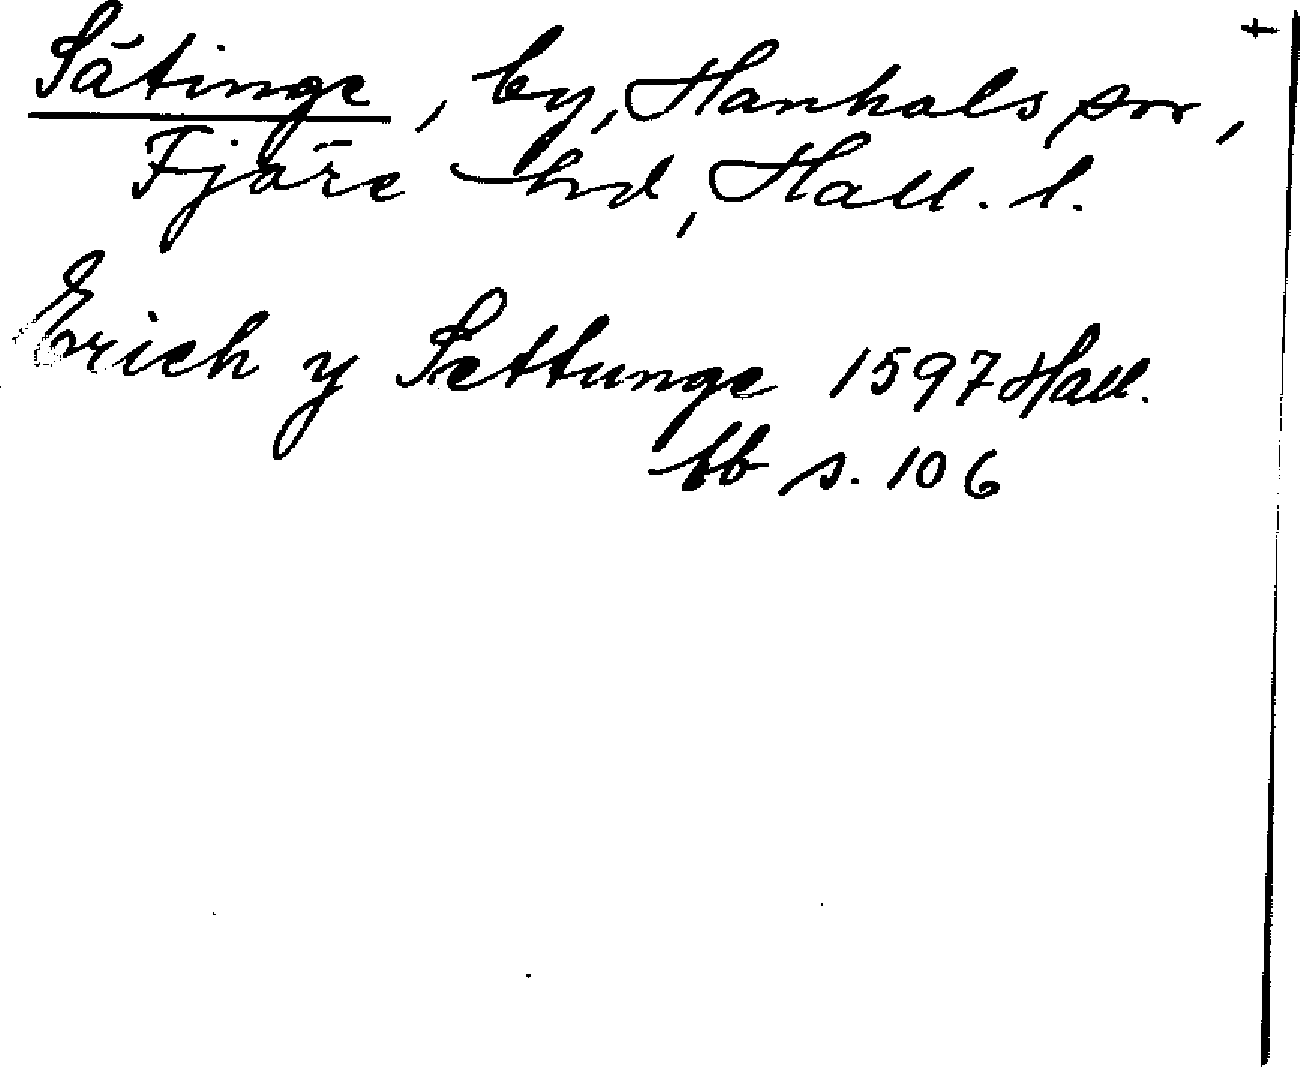 Sätinge, by, Hanhals sn,
Fjäre hd, Hall. l.
Erich y Settunge 1597 Hall.
bb s. 106